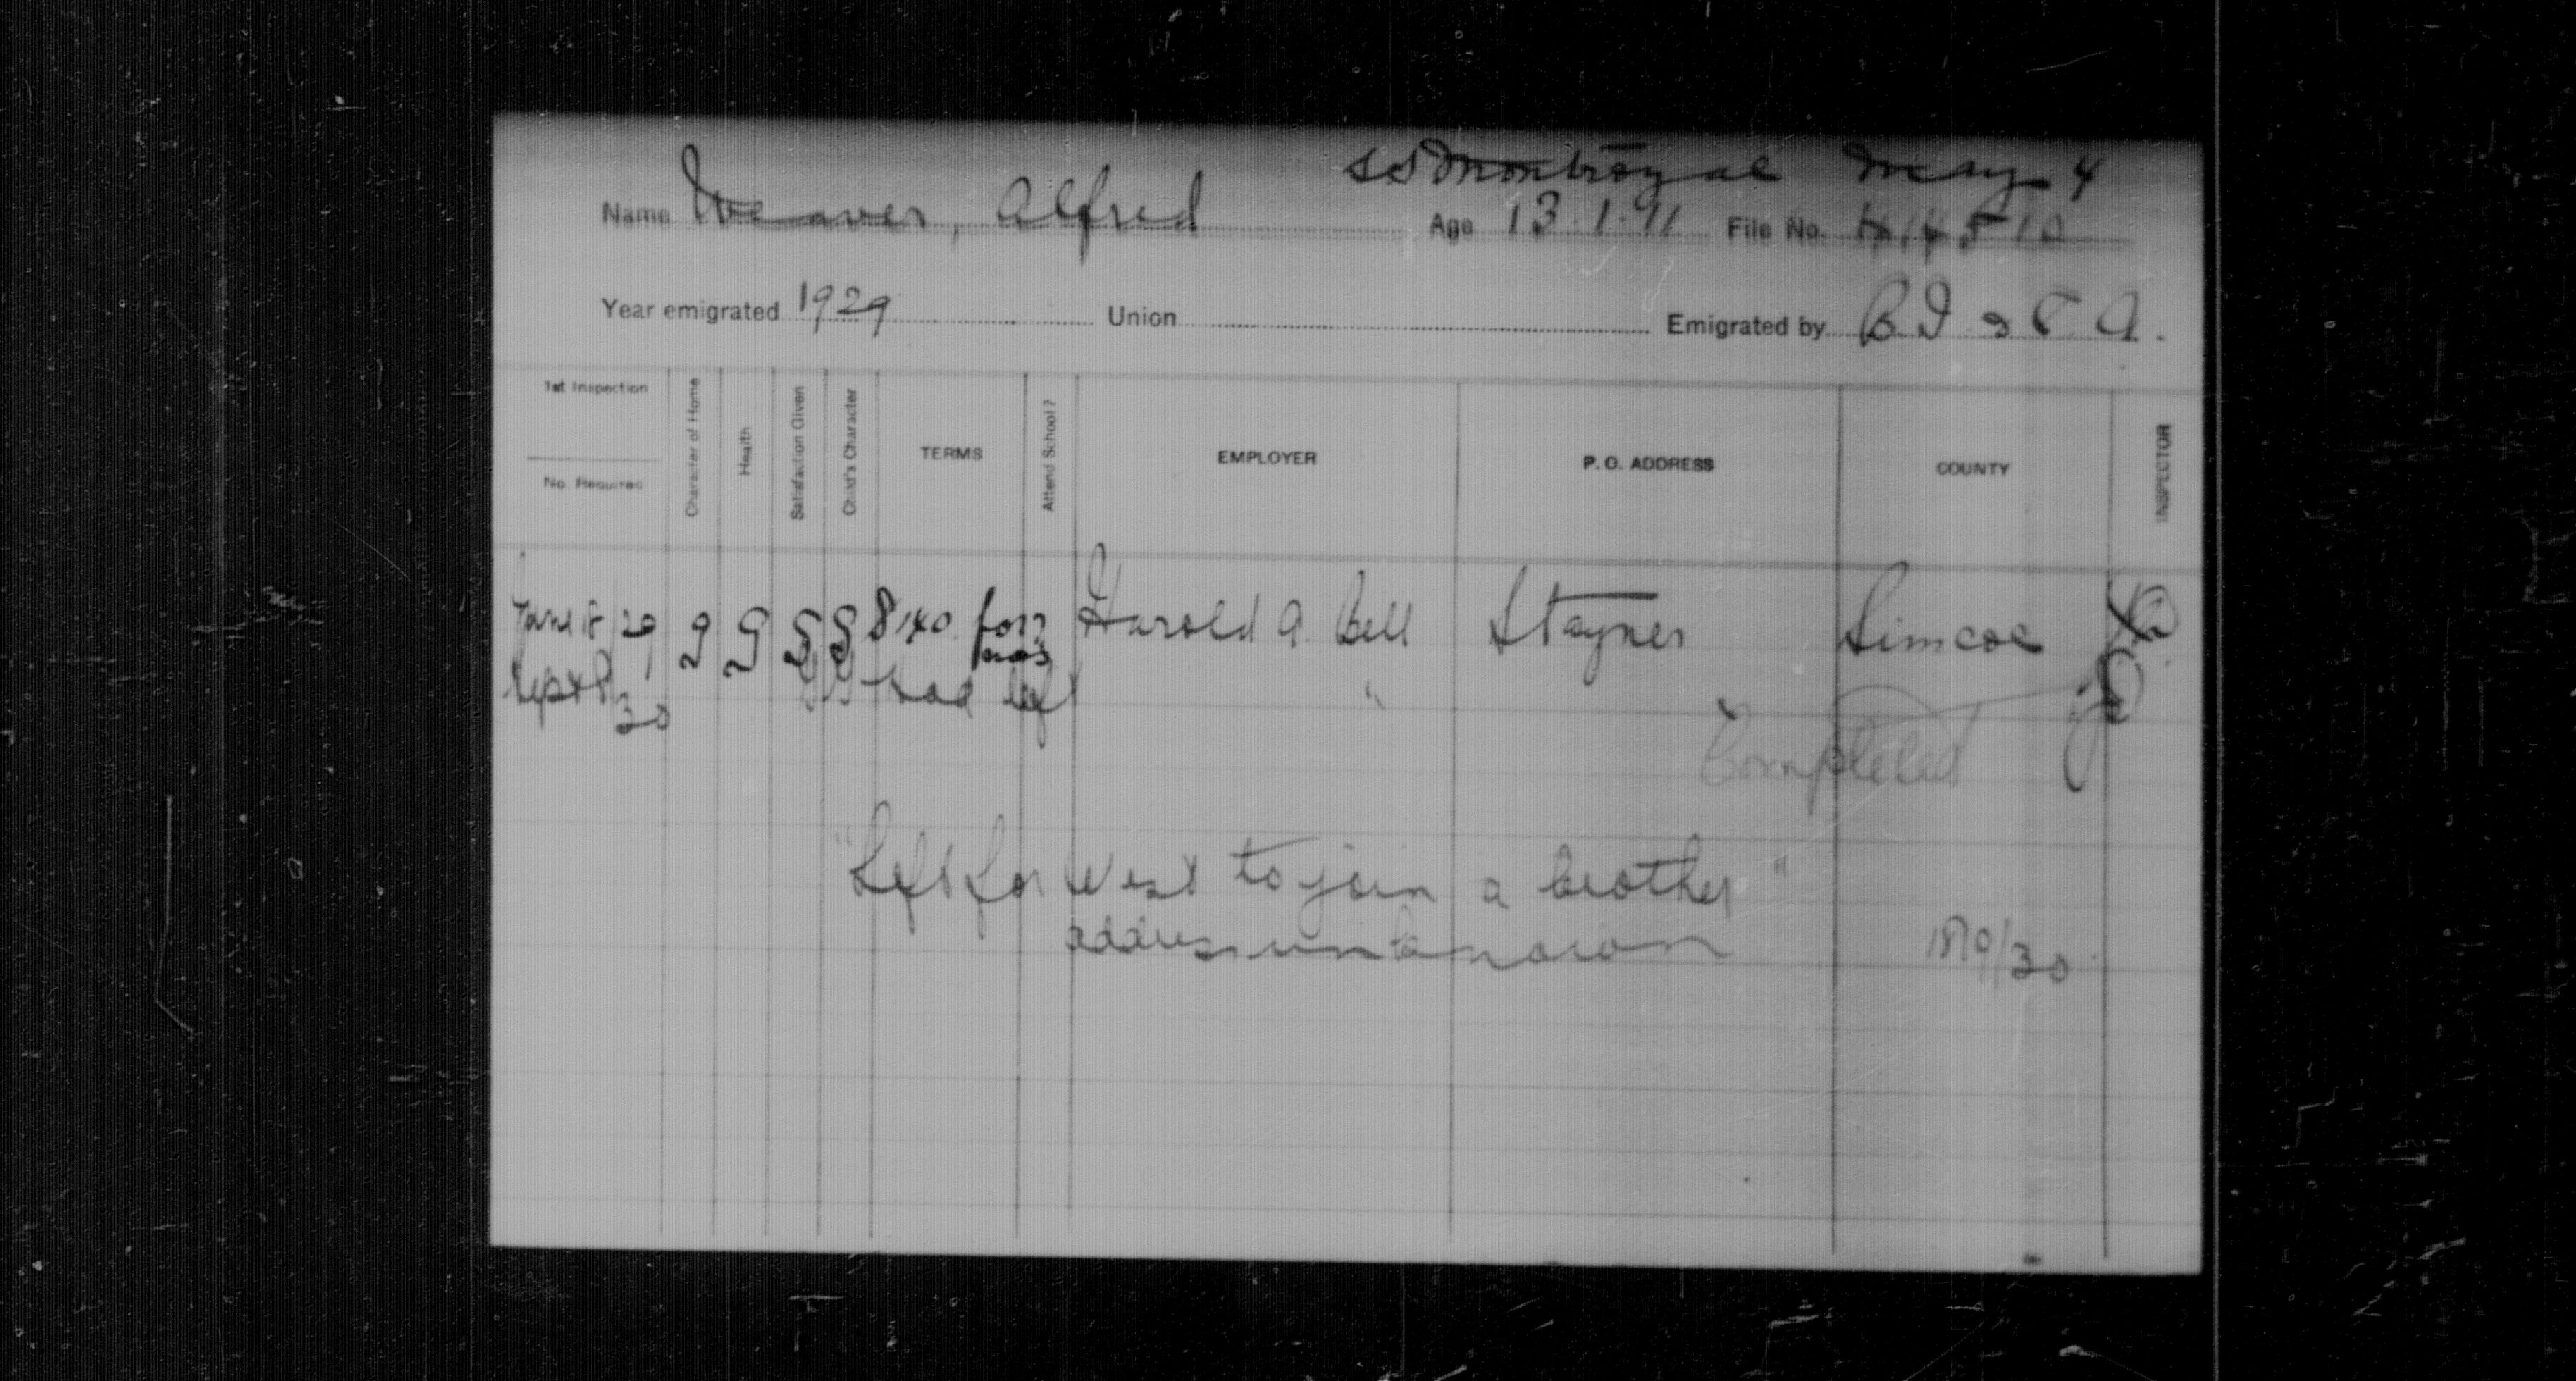 SS Montroyal May 4
Name Weaver, Alfred Age 13.1.11 File No.
Year emigrated 1929 Union Emigrated by B I & S A.
1st Inspection
No. Required
Character of Home
Health
Satisfaction Given
Child's Character
TERMS
Attend School?
EMPLOYER
P. O. ADDRESS
COUNTY
INSPECTOR
June 18/29 G G G G for mos Harold A. Bell Stayner Simcoe
Sept 30 had left "
Completed
"Left for West to join a brother"
address unknown 18/9/30